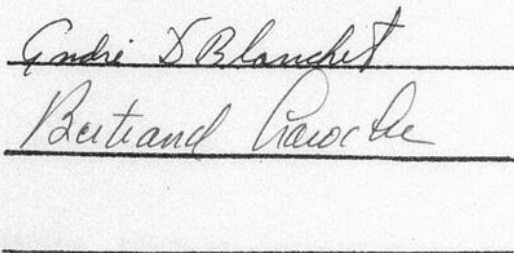 André D Blanchet
Bertrand Laroche